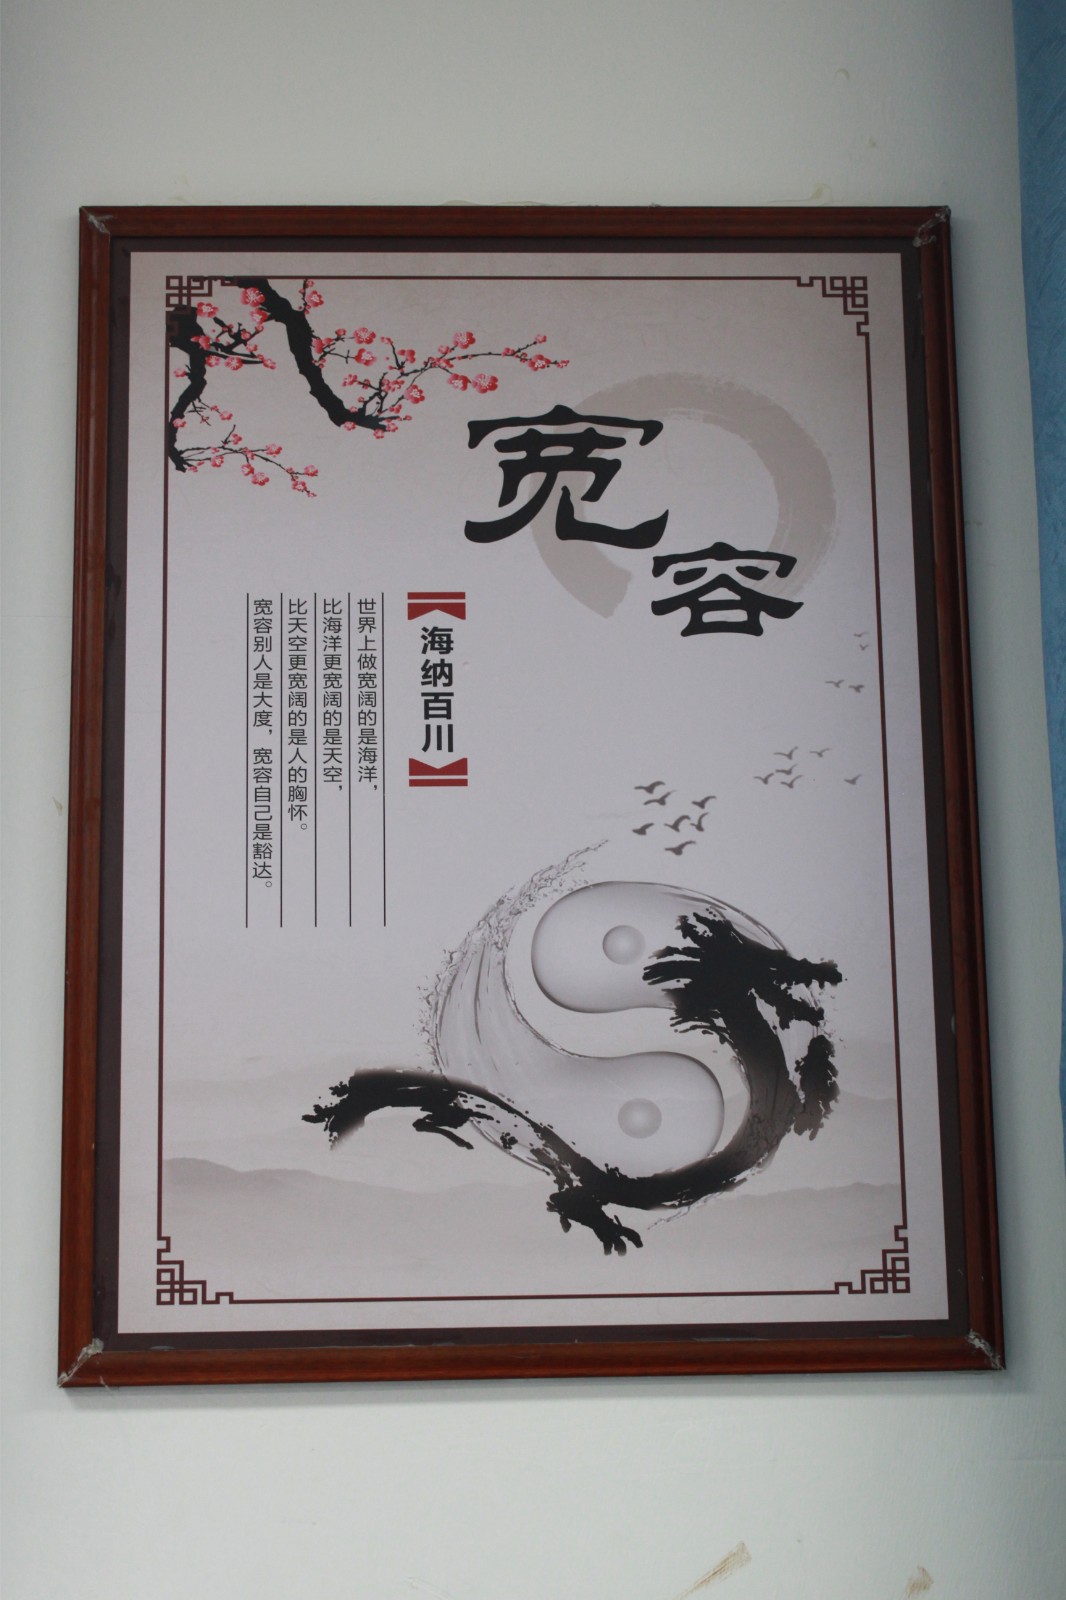 宽容
【海纳百川】
世界上做宽阔的是海洋，
比海洋更宽阔的是天空，
比天空更宽阔的是人的胸怀。
宽容别人是大度，宽容自己是豁达。